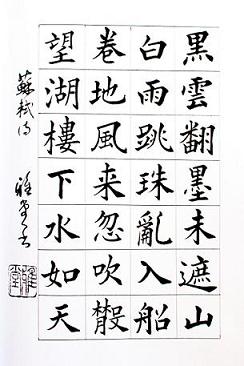 黑雲翻墨未遮山
白雨跳珠亂入船
卷地風来忽吹散
望湖樓下水如天
蘇軾诗